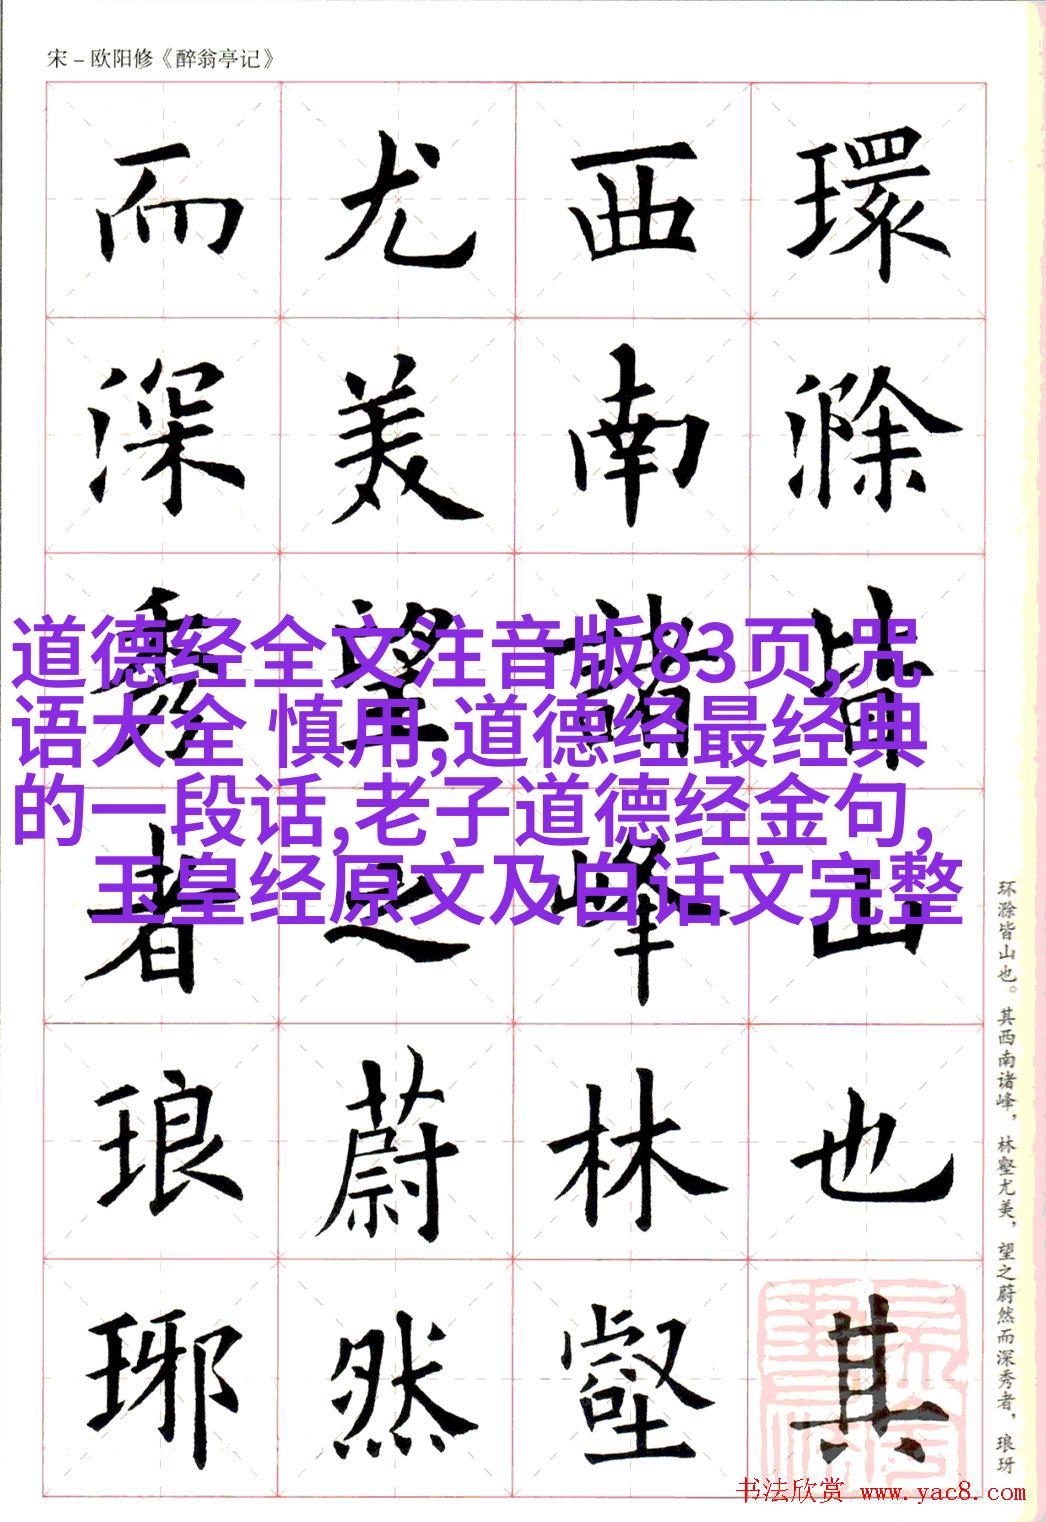 宋－欧阳修《醉翁亭记》
環滁皆山也其
西南諸峰林壑
尤美望之蔚然
而深秀者琅琊
道德经全文注音版83页,咒
语大全 慎用,道德经最经典
的一段话,老子道德经金句,
玉皇经原文及白话文完整
环滁皆山也。其西南诸峰，林壑尤美，望之蔚然而深秀者，琅玡
书法欣赏 www.yac8.com